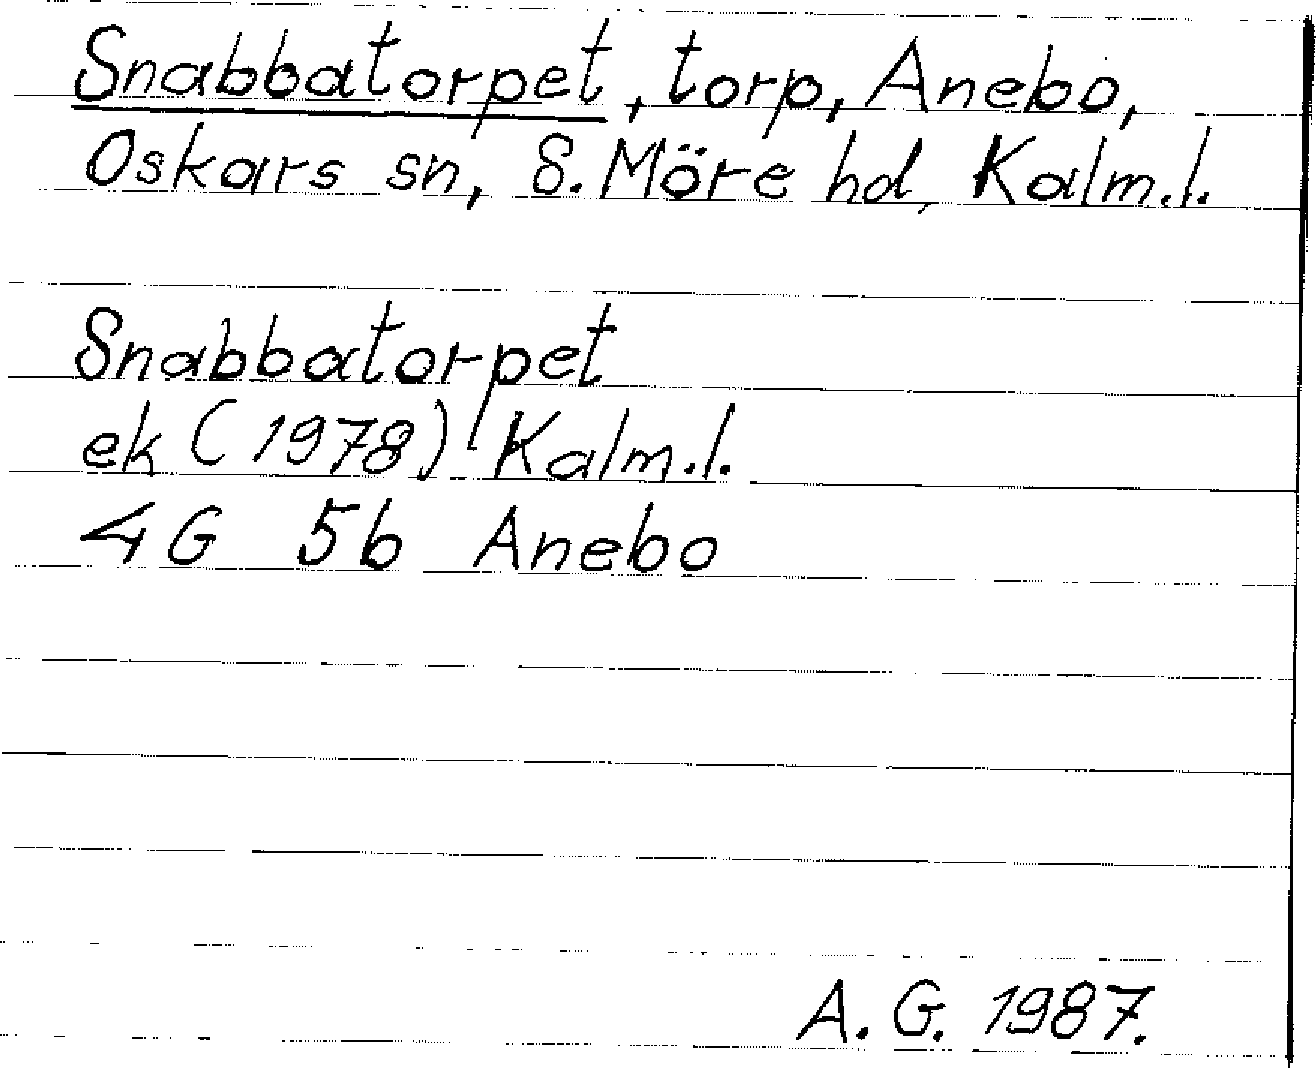 Snabbatorpet, torp, Anebo,
Oskars sn, S. Möre hd, Kalm.l.
Snabbatorpet
ek (1978) Kalm.l.
4G 5b Anebo
A. G. 1987.